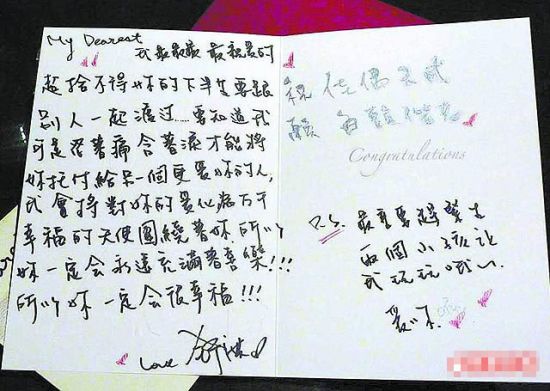 My Dearest
我最最最 最親愛的
超捨不得妳的下半生要跟
別人一起渡过 要知道我
可是忍著痛含著淚才能將
妳托付給另一個更愛妳的人,
我會將對妳的愛化為万千
幸福的天使圍繞著妳 所以
妳一定会永遠充滿著喜樂!!!
所以妳一定会很幸福!!!
Love
祝 佳偶天成
願
Congratulations
P.S. 最重要趕緊生
兩個小孩让
我玩玩哦~
愛妳